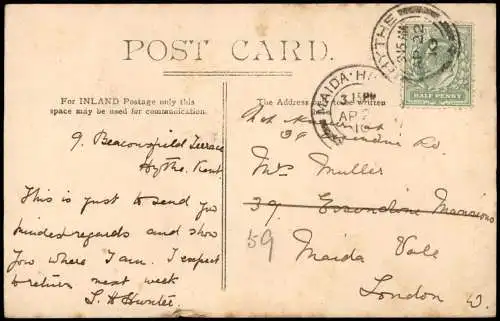 POST CARD.
For INLAND Postage only this
space may be used for communication.
The Address only to be written
HYTHE
AP 22
HALF PENNY
MAIDA·H
3.15 PM
AP
10
9. Beaconsfield Terrace
Hythe. Kent.
This is just to send you
kindest regards and show
you where I am. I expect
to return next week
S. H. Hunter.
Not
39
Rd.
Mrs Muller
39. Essendine Mansions
59
Maida Vale
London W.